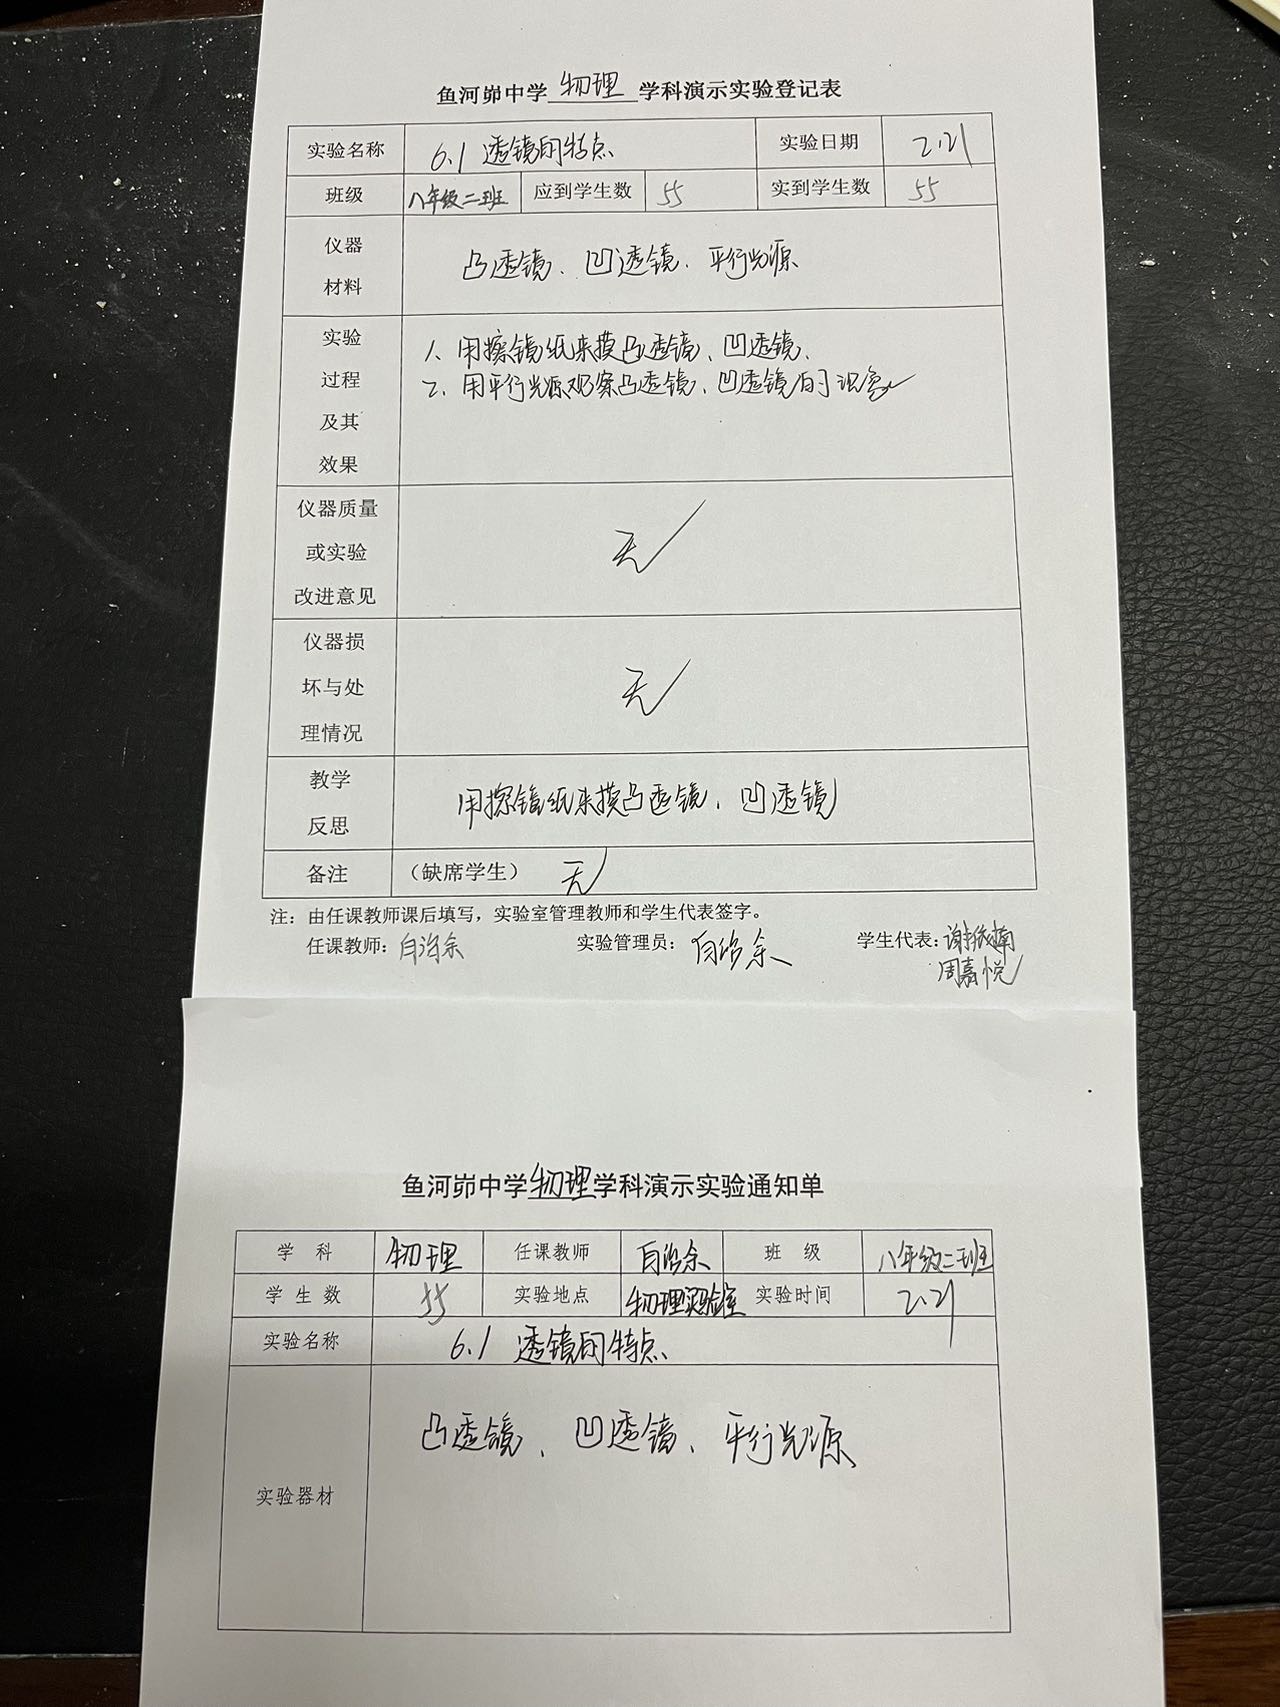 鱼河峁中学物理学科演示实验登记表
实验名称 6.1 透镜的特点 实验日期 2.21
班级 八年级二班 应到学生数 55 实到学生数 55
仪器
材料
凸透镜、凹透镜、平行光源
实验
过程
及其
效果
1、用擦镜纸来摸凸透镜、凹透镜、
2、用平行光源观察凸透镜、凹透镜的现象
仪器质量
或实验
改进意见
无
仪器损
坏与处
理情况
无
教学
反思
用擦镜纸来摸凸透镜、凹透镜
备注 （缺席学生） 无
注：由任课教师课后填写，实验室管理教师和学生代表签字。
任课教师： 实验管理员： 学生代表：
周嘉悦
鱼河峁中学物理学科演示实验通知单
学 科 物理 任课教师 班 级 八年级二班
学 生 数 55 实验地点 物理实验室 实验时间 2.21
实验名称 6.1 透镜的特点
实验器材
凸透镜、凹透镜、平行光源